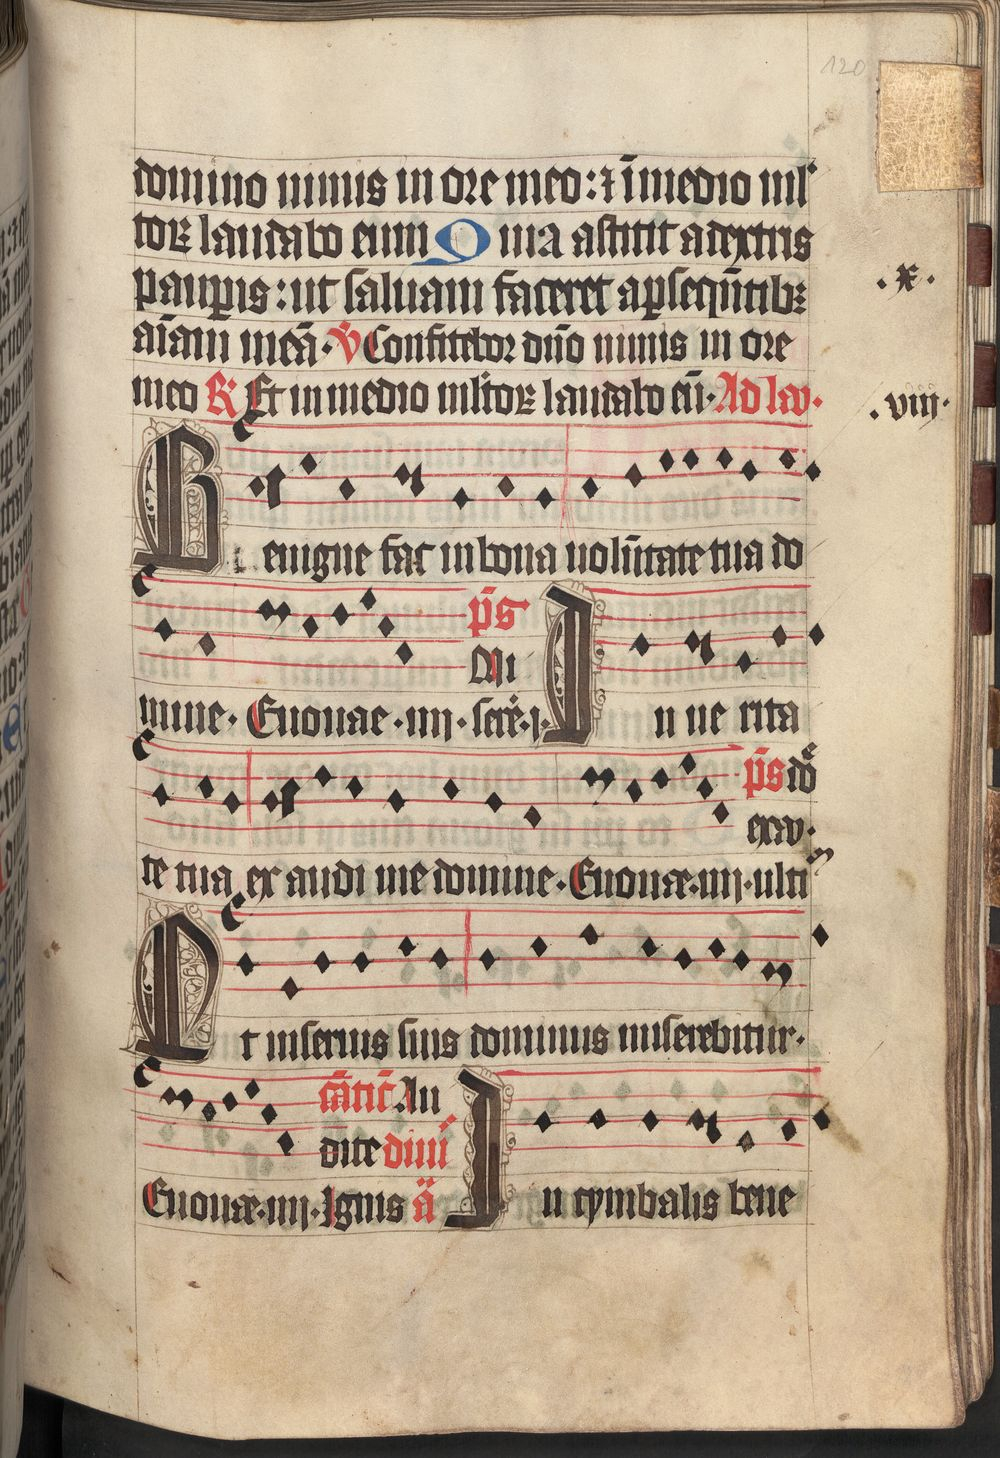 120
domino nimis in ore meo: ⁊ ī medio ml'
torꝝ laudabo eum Quia astitit a dextris
paupꝑis: ut saluam faceret a ꝑsequētibꝫ
aīam meā. V̄ Confitebor dn̄o nimis in ore
.x.
meo R̄ Et in medio ml'torꝝ laudabo eū. Ad lau.
.viij.
Benigne fac in bona volūtate tua do
p̄s
Mi
mine. Euouae .iiij. sere. i. In ue rita
p̄s dō
exau.
te tua ex audi me domine. Euouae .iiij. ulti
Et in seruis suis dominus miserebitur.
cātic̄ Au
dite
Euouae .iiij. Ignis ā In cymbalis bene